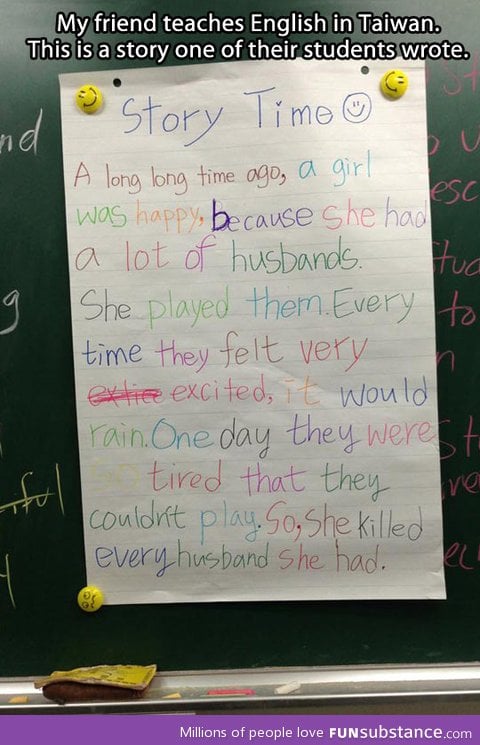 My friend teaches English in Taiwan.
This is a story one of their students wrote.
Story Time
A long long time ago, a girl
was happy, because she had
a lot of husbands.
She played them. Every
time they felt very
excited, it would
rain. One day they were
tired that they
couldn't play. So, She killed
every husband she had.
nd
g
esc
to
Millions of people love FUNsubstance.com